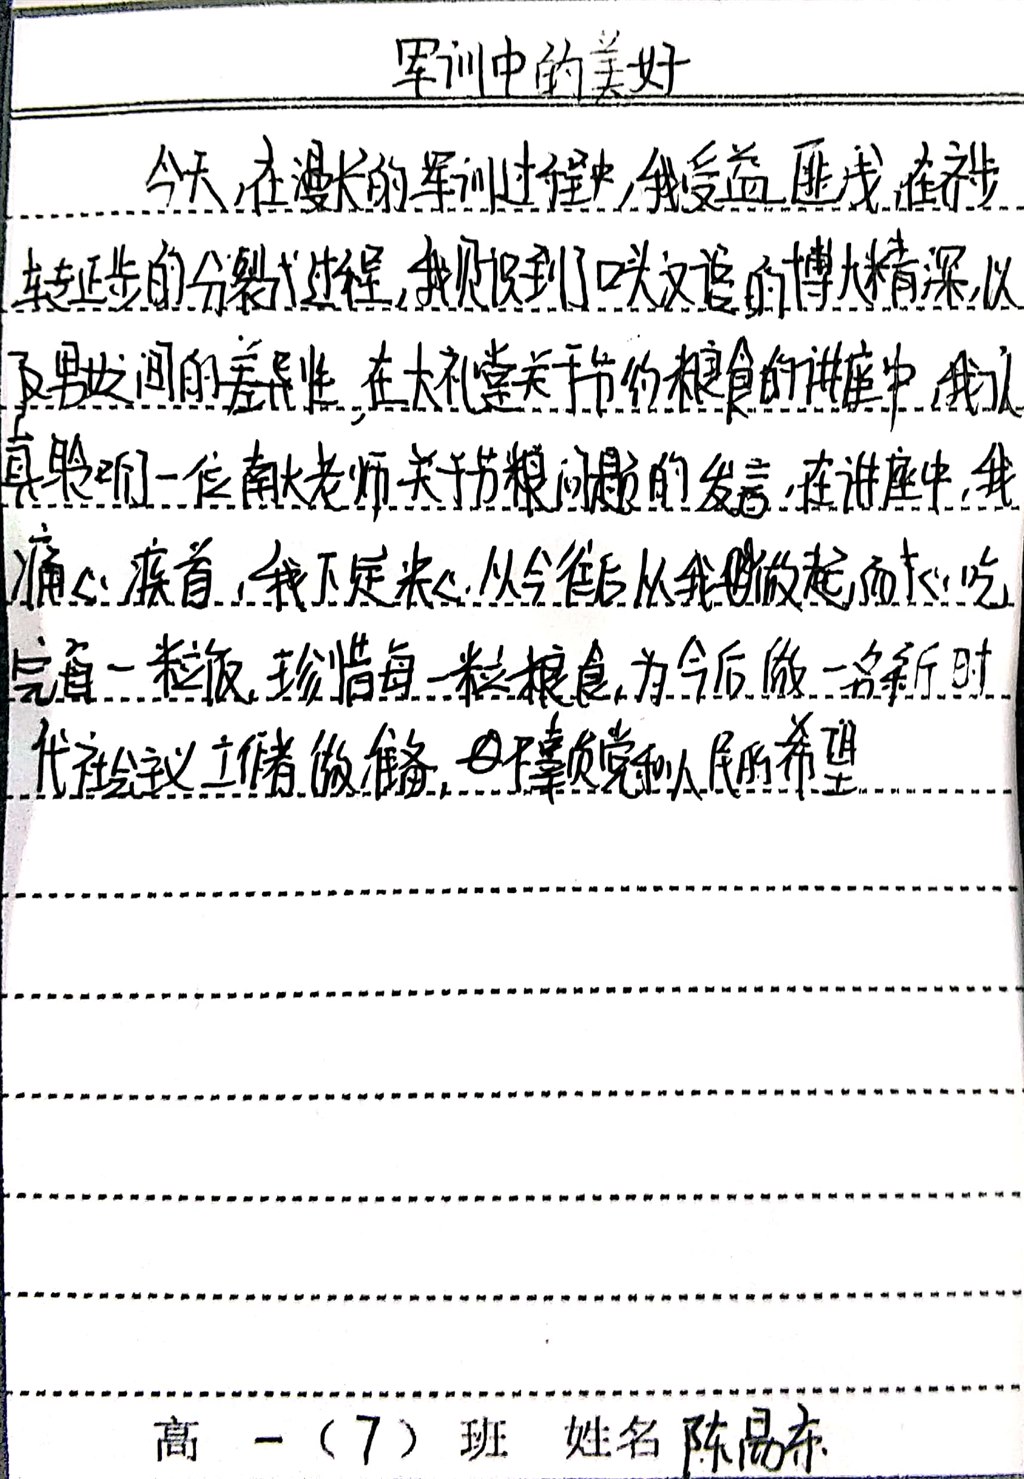 军训中的美好
今天,在漫长的军训过程中,我受益匪浅,在齐步
转正步的分裂式过程,我见识到了口头汉语的博大精深,以
及男女之间的差异性,在大礼堂关于节约粮食的讲座中,我认
真聆听一位南大老师关于节粮问题的发言,在讲座中,我
痛心疾首,我下定决心,从今往后从我做起,而大心吃
完每一粒饭,珍惜每一粒粮食,为今后做一名新时
代社会主义立储者做准备,毋不辜负党和人民的希望
高一(7)班 姓名 陈易东